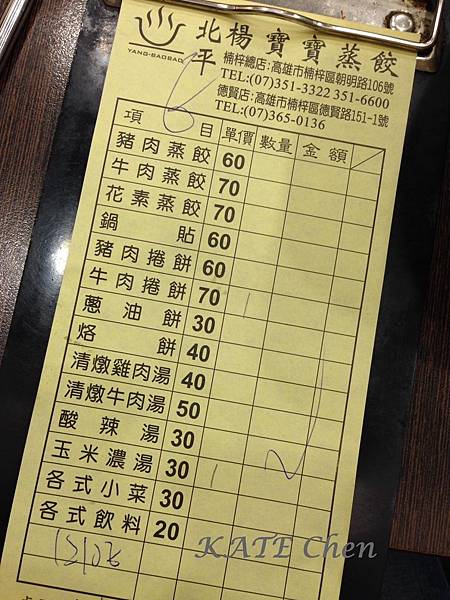 北平楊寶寶蒸餃
YANG-BAOBAO
楠梓總店:高雄市楠梓區朝明路106號
TEL:(07)351-3322 351-6600
德賢店:高雄市楠梓區德賢路151-1號
TEL:(07)365-0136
6
項目 單價 數量 金額
豬肉蒸餃 60
牛肉蒸餃 70
花素蒸餃 70
鍋貼 60
豬肉捲餅 60
牛肉捲餅 70 1
蔥油餅 30
烙餅 40
清燉雞肉湯 40
清燉牛肉湯 50
酸辣湯 30
玉米濃湯 30 1
各式小菜 30
各式飲料 20
KATE Chen